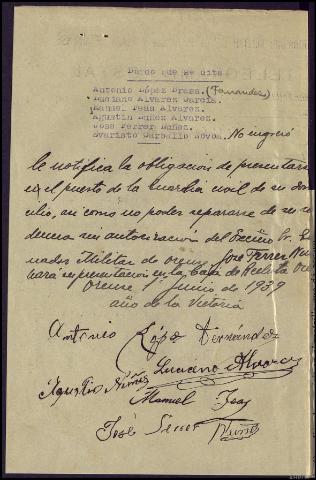 Dando que se cita
Antonio López Prasa. (Fernandez)
Luciano Alvarez Garcia.
Manuel Feas Alvarez.
Agustin Nuñez Alvarez.
Jose Ferrer Nuñez.
Evaristo Carballo Novoa. No ingresó
le notifica la obligacion de presentarse
en el puesto de la Guardia civil de su domi
cilio, asi como no poder separarse de su re
dencia sin autorización del Excmo Sr. Go
nador Militar de orense José Ferrer Nuñ
hará presentacion en la Caja de Recluta Ore
Orense 1º junio de 1939
año de la Victoria
Antonio López Fernández
Luciano Alvarez
Agustin Núñez
Manuel Feas
José Ferrer Nuñez